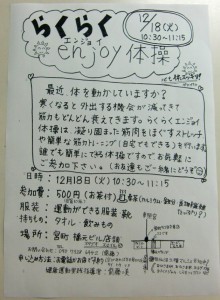 らくらく
エンジョイ
enjoy体操
12/18(火)
10:30~11:15
最近、体を動かしていますか?
寒くなると外出する機会が減ってきて
筋力もどんどん衰えてきます。らくらくエンジョイ
体操は、凝り固まった筋肉をほぐすストレッチ
や簡単な筋力トレーニング(自宅でもできる)を行います。
誰でも簡単にできる体操ですのでお気軽に
ご参加下さい。(お友達もご一緒にどうぞ)
日時:12月18日(火) 10:30~11:15
参加費:500円(お茶付)
服装:運動ができる服装、靴
持ちもの:タオル・飲みもの
場所:宮町
申し込み方法:
健康運動実践指導者